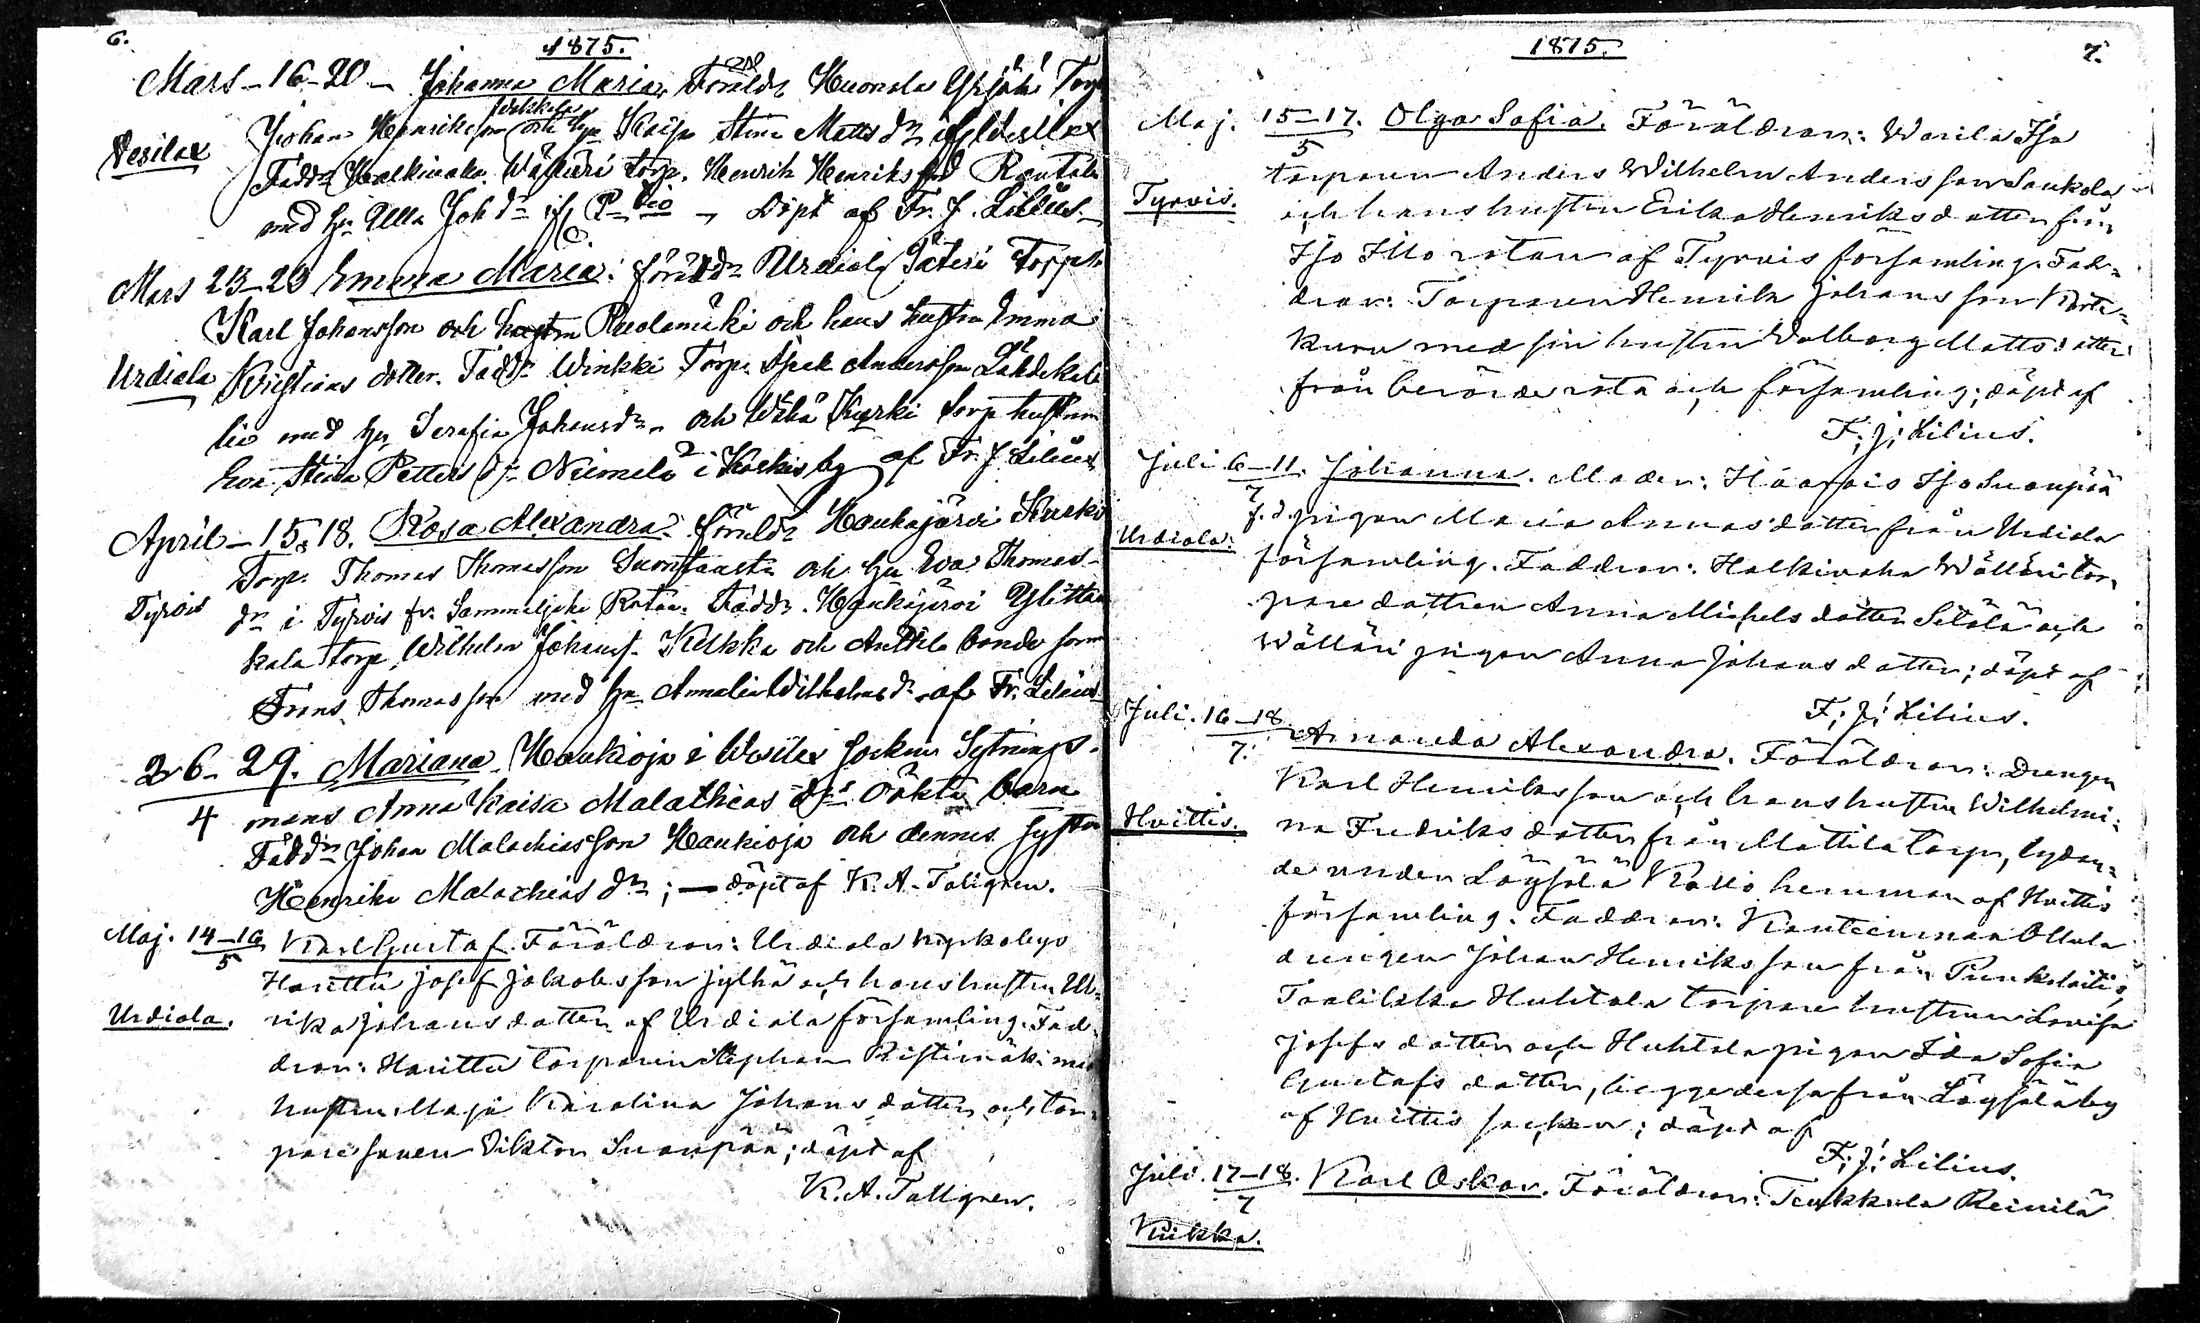 6.
1875.
Mars - 16-20 - Johanna Maria, Föräldr Huonola Yrjälä Torp
Johan Henriksson och hu Kaisa Stina Matts dr
Vesilax
Faddr Halkivaha Wälläri torp. Henrik Henriksson Rautala
med hu Ulla Joh dr if P - Döpt af Fr. J. Lilius.
Mars 23-29 Emma Maria: förädr Urdiala Säteri Torp
Karl Johansson och hustru och hans hustru Emma
Urdiala Kristians dotter. Faddr Winkki Torp. Isak Andersson
med hu Serafia Johansdr och Wähä Kurki torp hustrun
Eva Stina Petters dr Niemelä i Korkis by af Fr. J. Lilius
April - 15-18. Rosa Alexandra. föräldr Haukajärvi Kurki
Torp. Thomas Thomasson Suontausta och hu Eva Thomas-
Tyrvis dr i Tyrvis fr. Sammaljoki Rotan. Faddr. Haukijärvi
torp Wilhelm Johans. Kelkka och Anttila bonde son
Frans Thomasson med hu Amalia Wilhelms dr af Fr. Lilius
26-29. Mariana. Haukioja i Wesilax socken Sytnings-
4 mans Anna Kaisa Malachias drs oäkta barn
Faddr Johan Malachiasson Haukioja och dennes syster
Henrika Malachias dr; - döpt af K. A. Tallgren.
Maj. 14-16 Karl Gustaf. Föräldrar: Urdiala kyrkobys
5 Honttu Josef Jakobsson Jylhä och hans hustru Ul-
Urdiala. rika Johansdotter af Urdiala församling. Fad-
drar: Honttu torparen Stephan Ristimäki med
hustru Maja Karolina Johansdotter och tor-
pare sonen Viktor Suonpää; döpt af
K. A. Tallgren.
1875.
7.
Maj. 15-17. Olga Sofia. Föräldrar: Warila Iso
5
torparen Anders Wilhelm Andersson Saukola
Tyrvis.
och hans hustru Erika Henriksdotter från
Iso Illo rotan af Tyrvis församling. Fad-
drar: Torparen Henrik Johansson Korte-
kuru med sin hustru Walborg Mattsdotter
från berörde rota och församling; döpt af
F; J; Lilius.
Juli 6-11. Johanna. Moder: Honois Iso Suonpää
7
f. d. pigan Maria Annasdotter från Urdiala
Urdiala.
församling. Faddrar: Halkivaha Wälläri tor-
pare dottren Anna Michelsdotter Setälä och
Wälläri pigan Anna Johansdotter; döpt af
F; J; Lilius.
Juli. 16-18. Amanda Alexandra. Föräldrar: Drengen
7.
Karl Henriksson och hans hustru Wilhelmi-
Hvittis.
na Fredriksdotter från Mattila torp, lydan-
de under Löysälä Kallo hemman af Hvittis
församling. Faddrar: Kanteenmaa Ollula
drengen Johan Henriksson från Punkalaitio,
Taalikka Huhtala torpare hustrun Lovisa
Josefsdotter och Huhtala pigan Ida Sofia
Gustafsdotter, begge dessa från Löysälä by
af Hvittis socken; döpt af
F; J; Lilius.
Juli. 17-18. Karl Oskar. Föräldrar: Teukkula Reinilä
7
Kiikka.